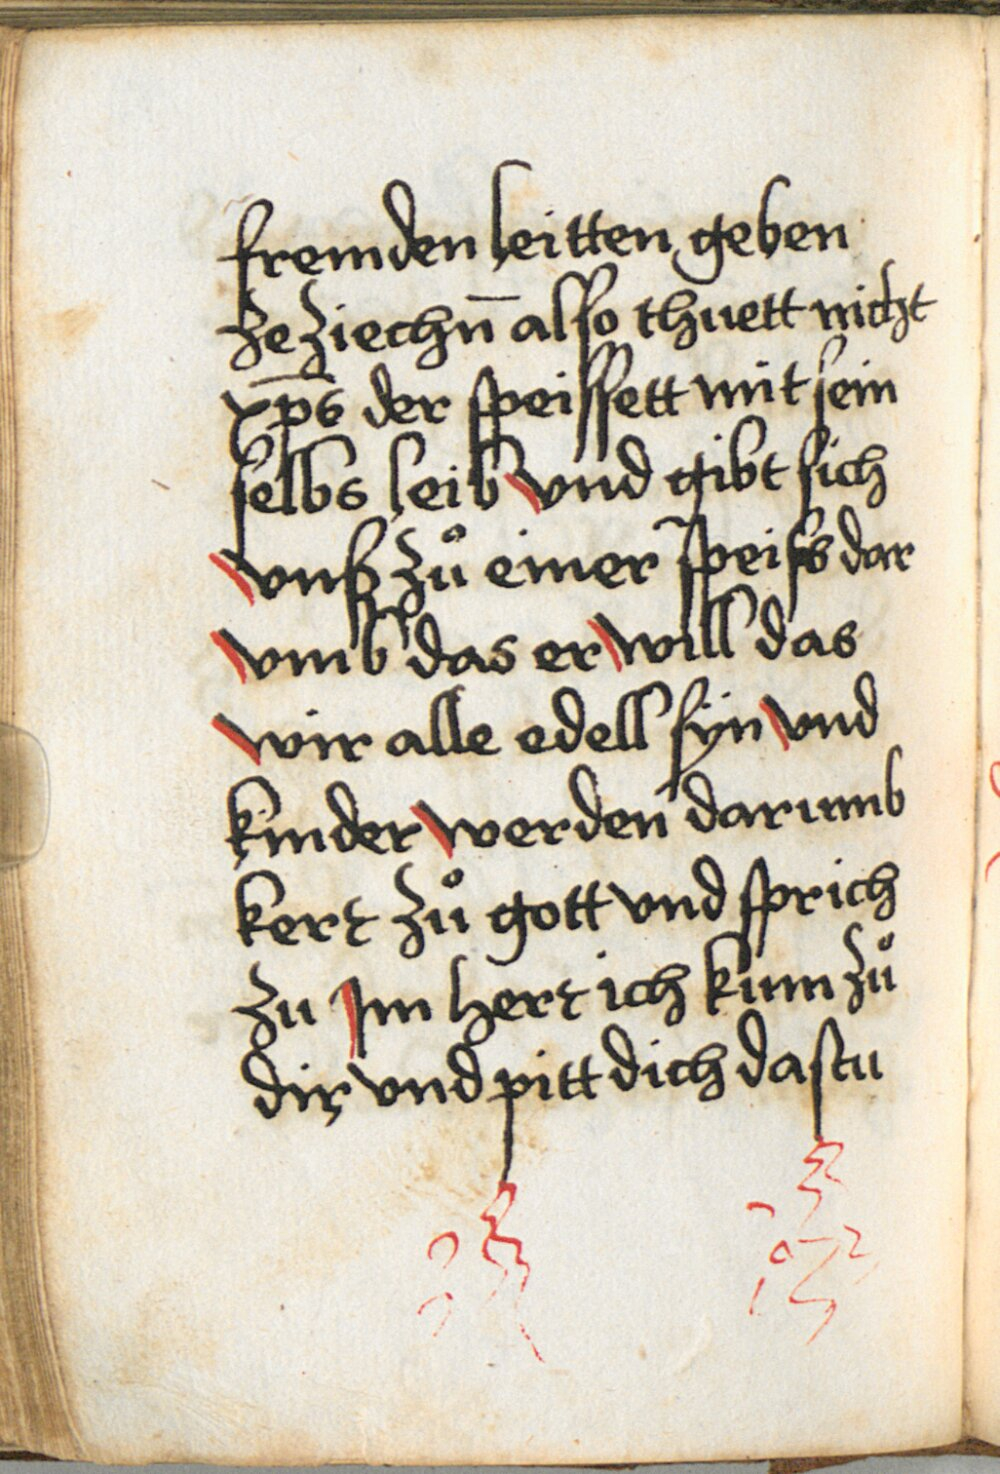 fremden leitten geben
ze ziechn̄ also thuett nicht
xp̄s der speissett mit sein
selbs leib vnd gibt sich
vnß zů einer speiss dar
vmb das er will das
wir alle edell syn vnd
kinder werden darumb
kert zů gott vnd sprich
zu Im herr ich kum zů
dir vnd pitt dich dastu